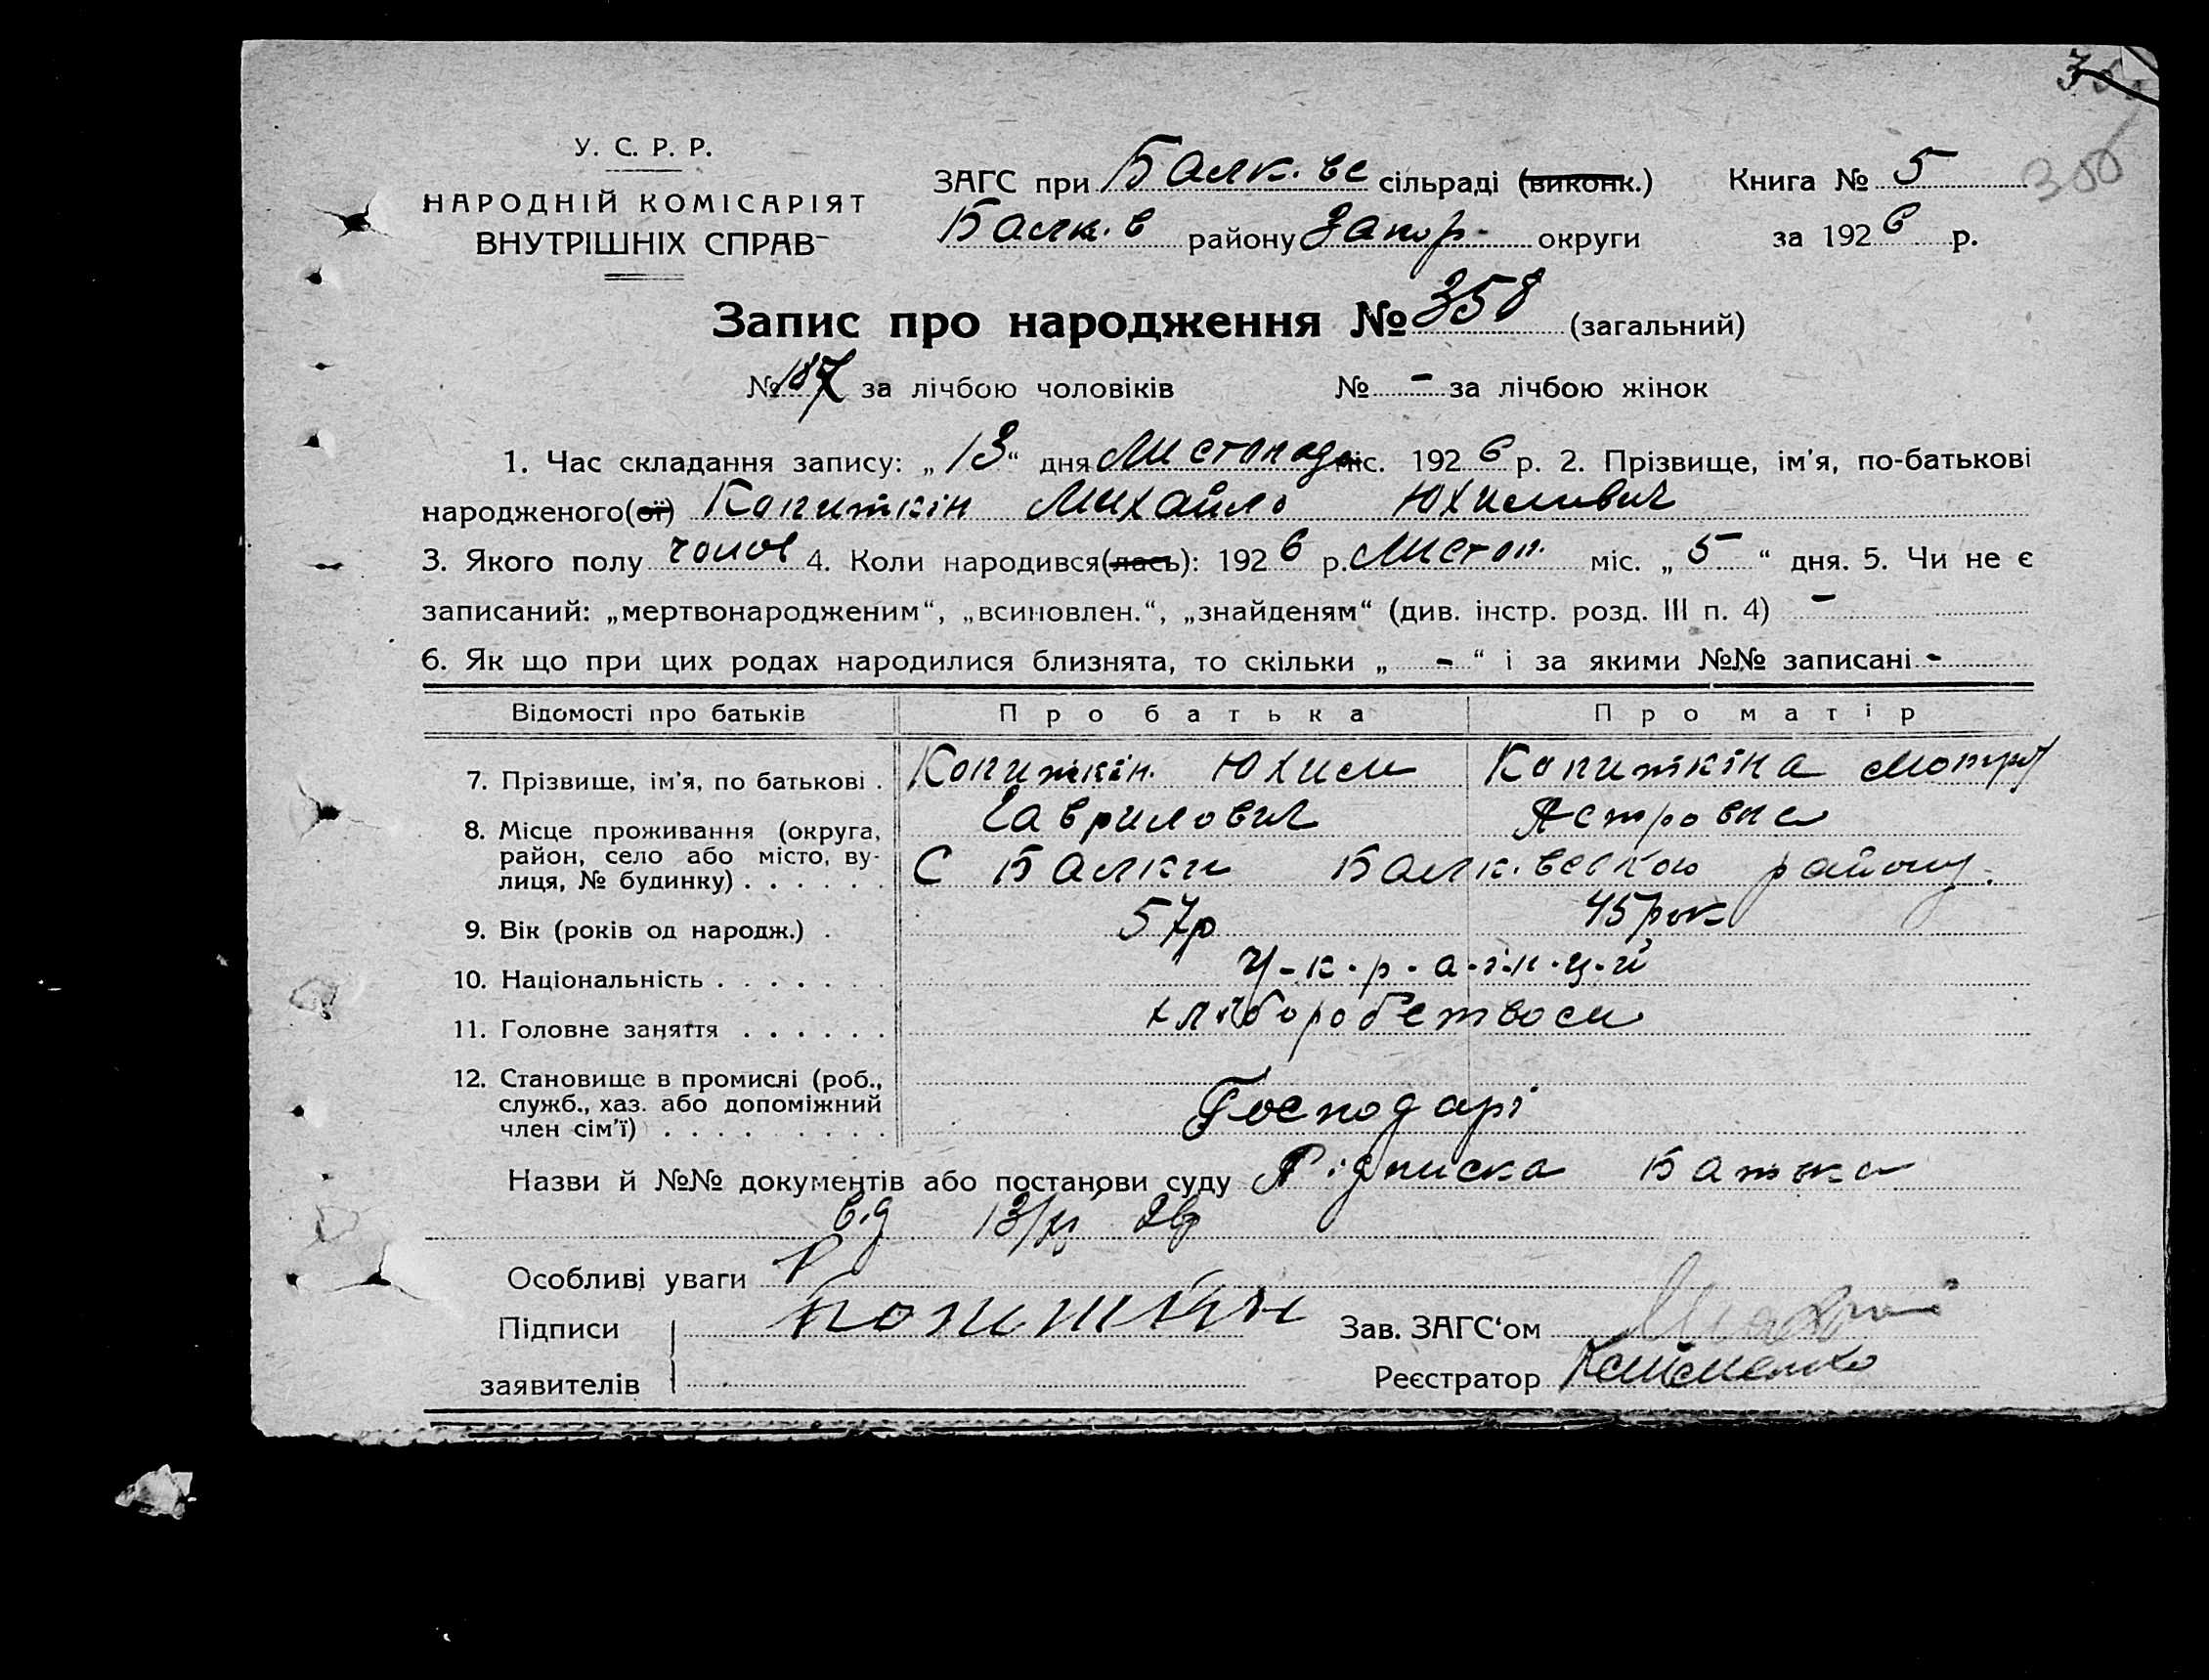 У. С. Р. Р.
НАРОДНІЙ КОМІСАРІЯТ
ВНУТРІШНІХ СПРАВ
ЗАГС при Балк. ве сільраді (виконк.) Книга № 5
Балк. в району Запор. округи за 1926 р.
306
Запис про народження № 358 (загальний)
№ 187 за лічбою чоловіків № - за лічбою жінок
1. Час складання запису: „13“ дня Листопада міс. 1926 р. 2. Прізвище, ім'я, по-батькові
народженого(ої) Копиткін Михайло Юхимович
3. Якого полу чолов 4. Коли народився(лась): 1926 р. Листоп. міс. „5“ дня. 5. Чи не є
записаний: „мертвонародженим“, „всиновлен.“, „знайденям“ (див. інстр. розд. III п. 4) -
6. Як що при цих родах народилися близнята, то скільки „ - “ і за якими №№ записані -
Відомості про батьків Про батька Про матір
7. Прізвище, ім'я, по батькові . Копиткін Юхим Копиткіна Мотря
Гаврилович
8. Місце проживання (округа, район, село або місто, вулиця, № будинку) . . . . . . С Балки Балк. району.
9. Вік (років од народж.) . 57р 45 рок
10. Національність . . . . . . . У-к-р-а-ї-н-ц-и
11. Головне заняття . . . . . . хліборобством
12. Становище в промислі (роб., служб., хаз. або допоміжний член сім'ї) . . . . . . . . Господарі
Назви й №№ документів або постанови суду Підписка Батька
від 13/XI 26р
Особливі уваги
Підписи
заявителів
Копиткін
Зав. ЗАГС'ом
Реєстратор